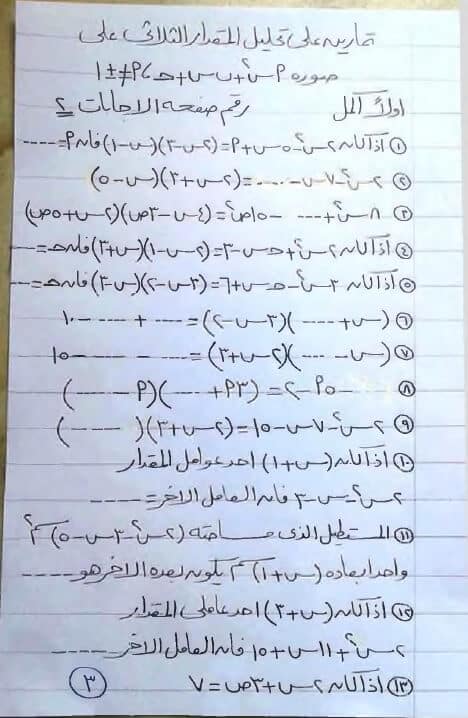 تمارين على تحليل المقدار الثلاثى على
صوره ٢س٢+ب س+حـ ، ٢≠±١
اولاً اكمل رقم صفحه الاجابات ٢
① اذا كان ٢س٢-٥س+٢=(٢س-٣)(س-١) فان ٢=----
② ٢س٢-٧س-....=(٢س+٣)(س-٥)
③ ٨س٢+---- -١٥ص٢=(٤س-٣ص)(٢س+٥ص)
④ اذا كان ٢س٢+حـس-٣=(٢س-١)(س+٣) فان حـ=---
⑤ اذا كان ٣س٢-حـس+٦=(٣س-٢)(س-٣) فان حـ=---
⑥ (س+----)(٣س-٢)=----+----١٠
⑦ (س-----)(٢س+٣)=---- - ---- ١٥
⑧ ---- -٥٢-٢=(٣٢+----)(٢-----)
⑨ ٢س٢-٧س-١٥=(٢س+٣)(------)
⑩ اذا كان (س+١) احد عوامل المقدار
٢س٢-س-٣ فان العامل الاخر=-----
⑪ المستطيل الذى مساحته (٢س٢-٣س-٥)سم٢
واحد ابعاده (س+١)سم يكون بعده الاخر هو----
⑫ اذا كان (س+٣) احد عاملى المقدار
٢س٢+١١س+١٥ فان العامل الاخر----
⑬ اذا كان ٢س+٣ص=٧
③